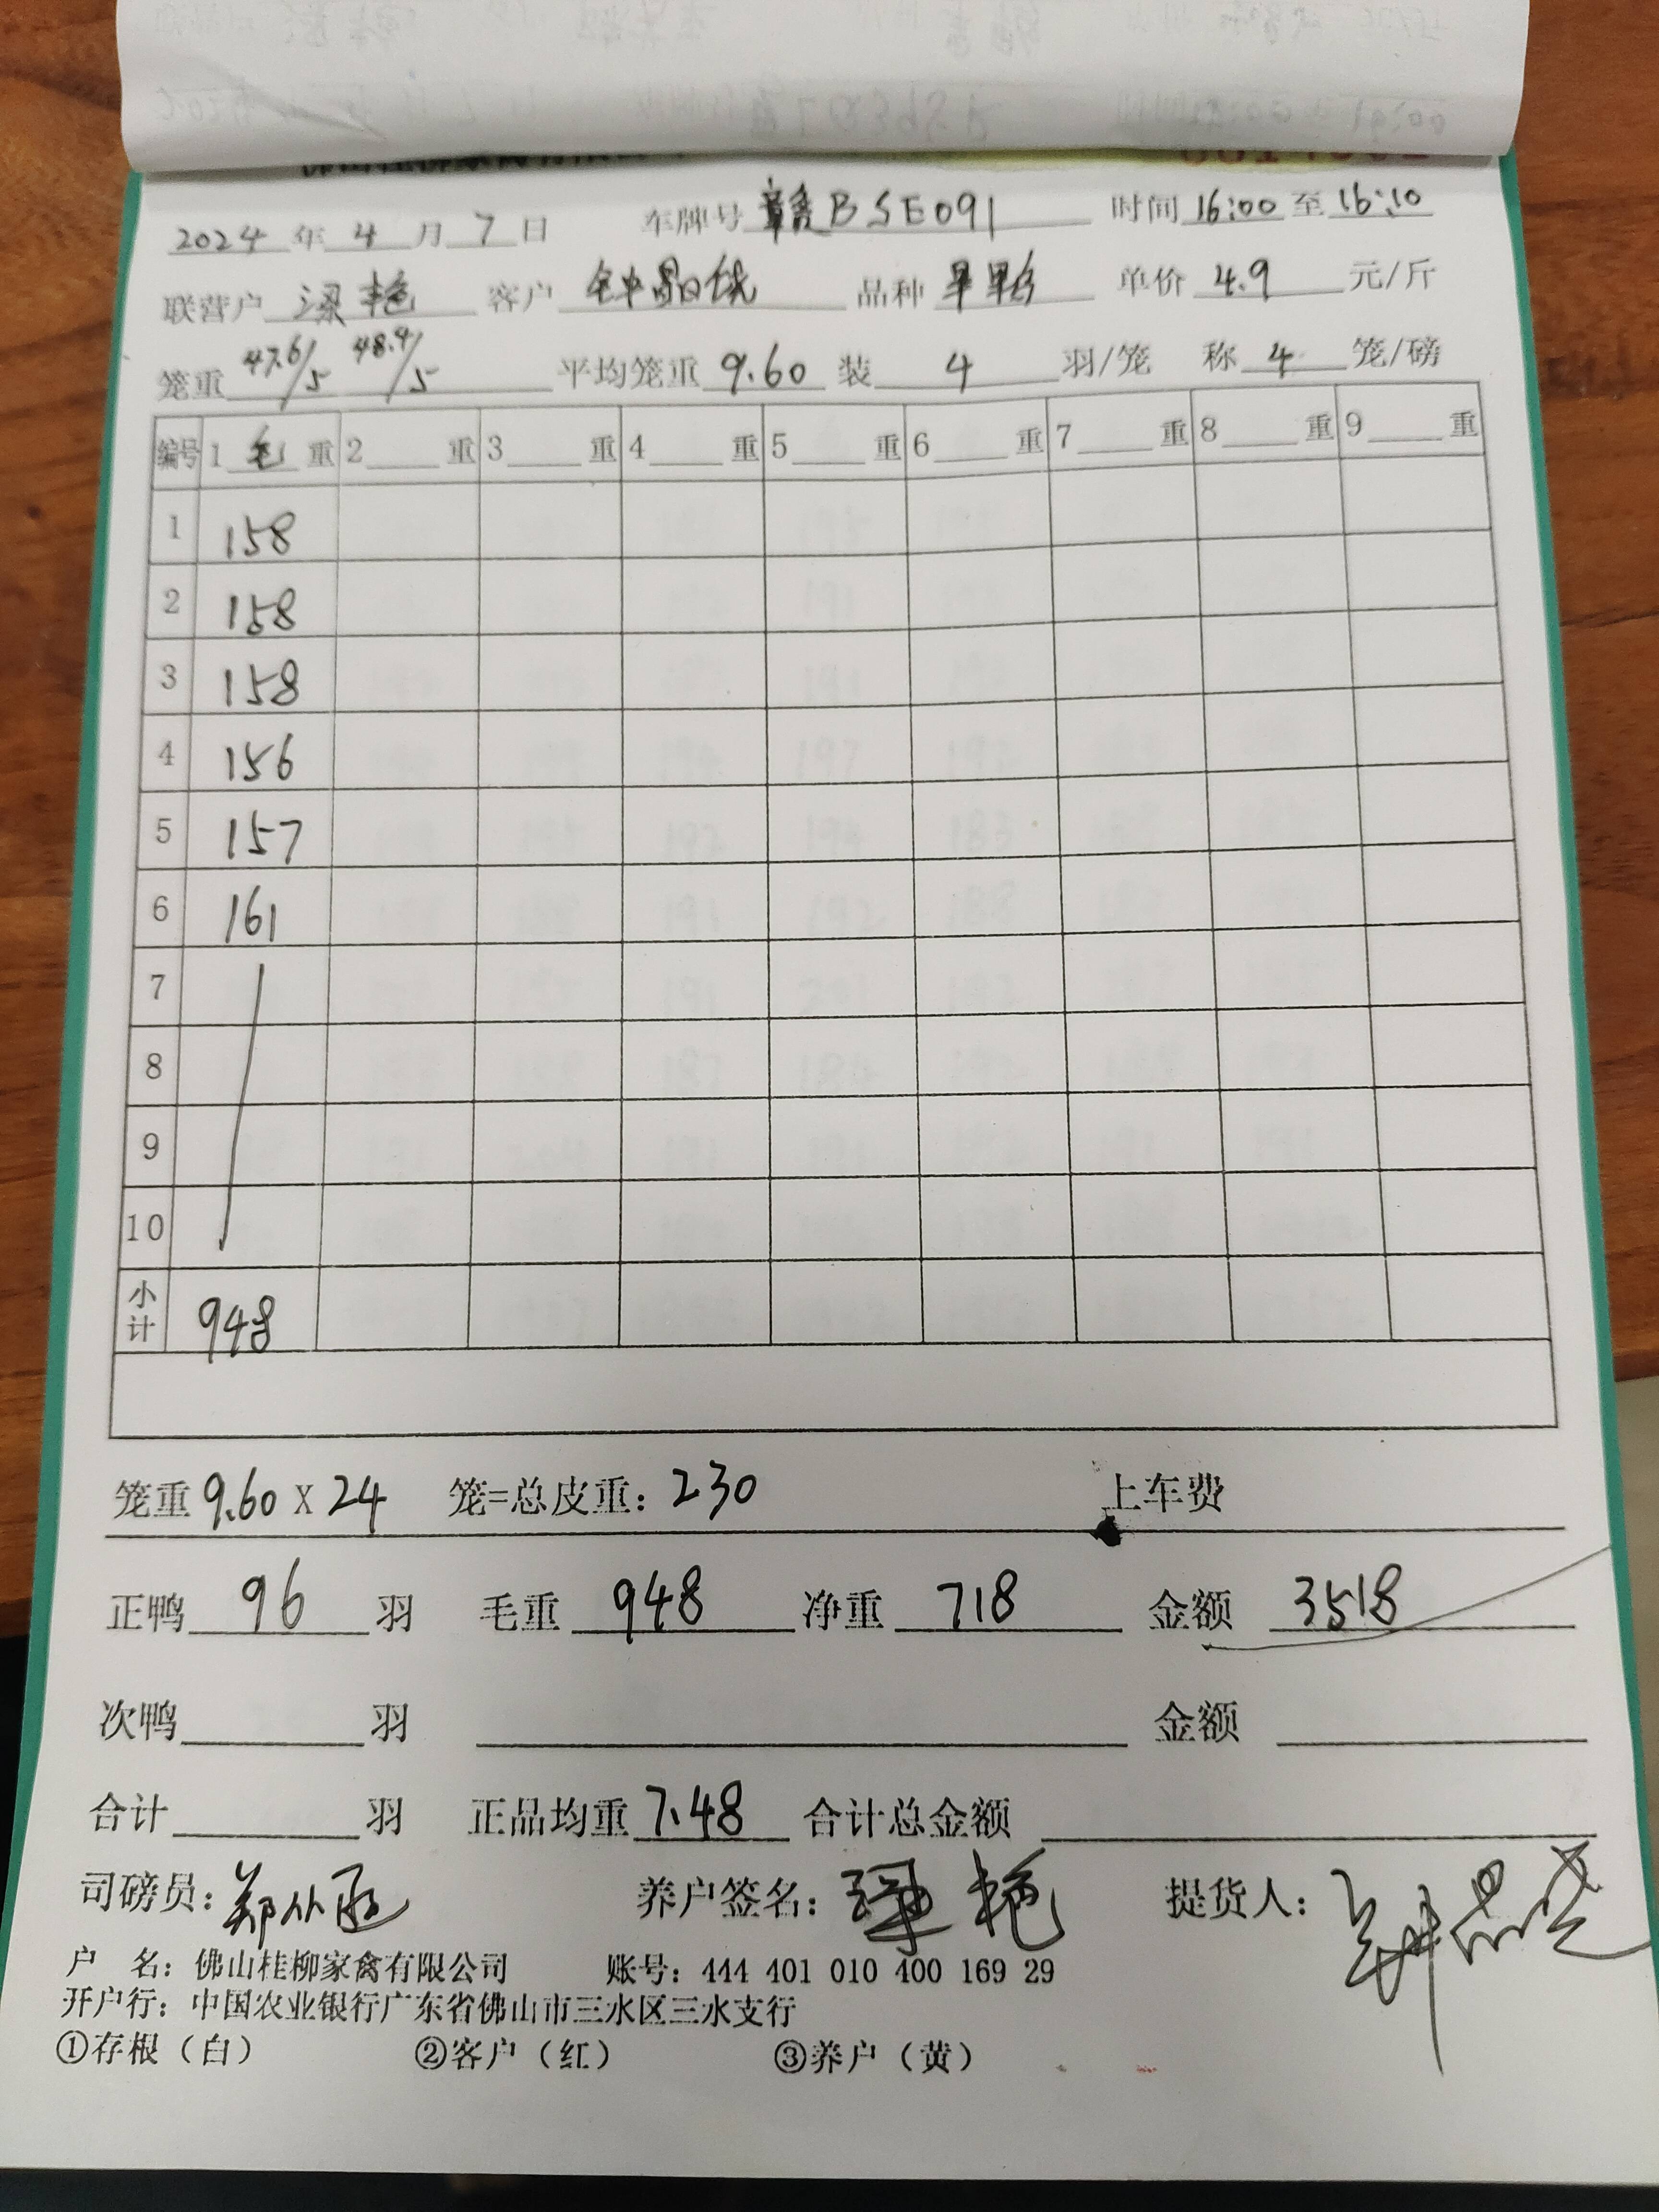 2024 年 4 月 7 日 车牌号 赣BSE091 时间 16:00 至 16:10
联营户 梁艳 客户 钟 品种 单价 4.9 元/斤
笼重 47.6/5 48.4/5 平均笼重 9.60 装 4 羽/笼 称 4 笼/磅
编号 1 毛 重 2 重 3 重 4 重 5 重 6 重 7 重 8 重 9 重
1 158
2 158
3 158
4 156
5 157
6 161
7
8
9
10
小计 948
笼重 9.60 X 24 笼=总皮重: 230 上车费
正鸭 96 羽 毛重 948 净重 718 金额 3518
次鸭 羽 金额
合计 羽 正品均重 7.48 合计总金额
司磅员: 郑 养户签名: 梁艳 提货人:
户 名: 佛山桂柳家禽有限公司 账号: 444 401 010 400 169 29
开户行: 中国农业银行广东省佛山市三水区三水支行
①存根（白） ②客户（红） ③养户（黄）